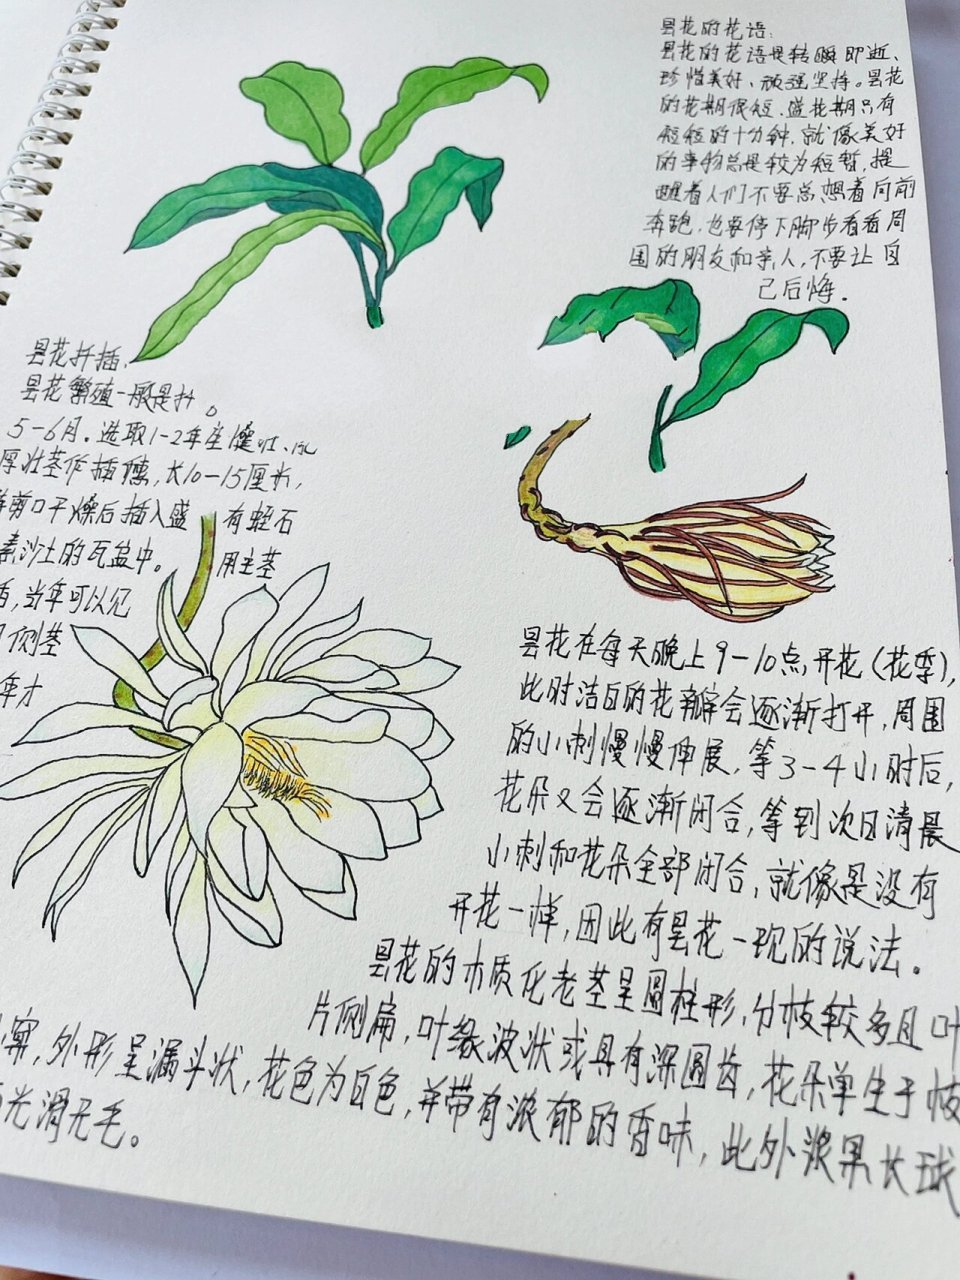 昙花的花语:
昙花的花语是转瞬即逝、
珍惜美好、顽强坚持。昙花
的花期很短、盛花期只有
短短的十分钟,就像美好
的事物总是较为短暂,提
醒着人们不要总想着向前
奔跑,也要停下脚步看看周
围的朋友和亲人,不要让自
己后悔.
昙花扦插,
昙花繁殖一般是扦。
5-6月.选取1-2年生健壮、
厚壮茎作插穗,长10-15厘米,
剪口干燥后插入盛有蛭石
素沙土的瓦盆中。用主茎
当年可以见
侧茎
年才
昙花在每天晚上9-10点,开花(花季),
此时洁白的花瓣会逐渐打开,周围
的小刺慢慢伸展,等3-4小时后,
花朵又会逐渐闭合,等到次日清晨
小刺和花朵全部闭合,就像是没有
开花一样,因此有昙花一现的说法。
昙花的木质化老茎呈圆柱形,分枝较多且叶
片侧扁,叶缘波状或具有深圆齿,花朵单生于枝
外形呈漏斗状,花色为白色,并带有浓郁的香味,此外浆果长球
光滑无毛。